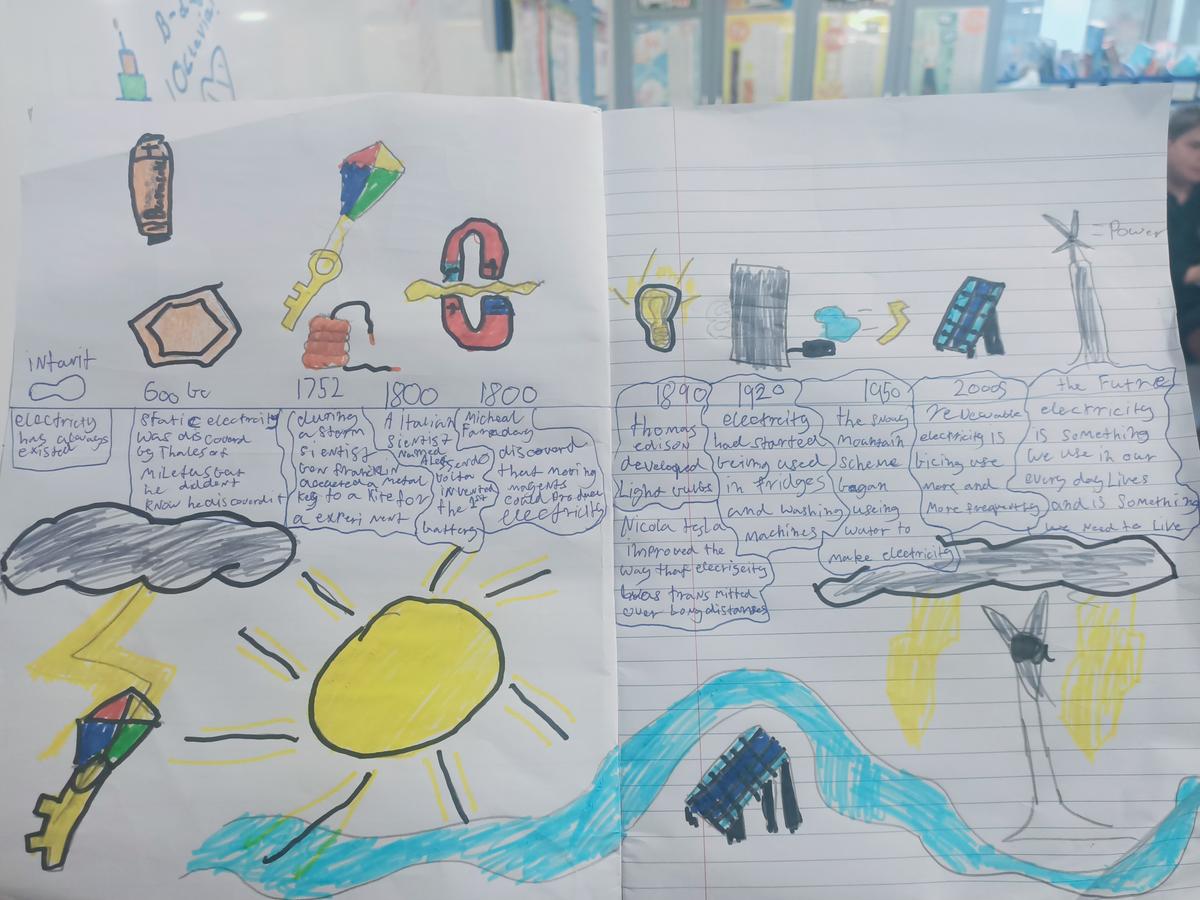 B-d
Octavia!
Duracell
= Power
infanit
600 bc
1752
1800
1800
1890
1920
1950
2000s
the Future
electricity
has always
existed
Static electricity
was discoverd
by Thales of
Miletus but
he dident
know he discoverd it
during
a storm
sientist
ben franklin
accated a metal
key to a kite for
a experiment
A Italian
sientist
named
Alessendo
Volta
invented
the 1st
battery
Micheal
Faraday
discoverd
that moving
magents
could produce
electricity
thomas
edison
developed
Light bulbs
Nicola tesla
improved the
way that elecriseity
was transmitted
over long distances
electricity
had started
being used
in fridges
and washing
machines
the snowy
Mountain
scheme
began
useing
water to
make electricity
renewable
electricity is
bieing use
more and
more frequently
electricity
is something
we use in our
every day Lives
and is something
we need to Live